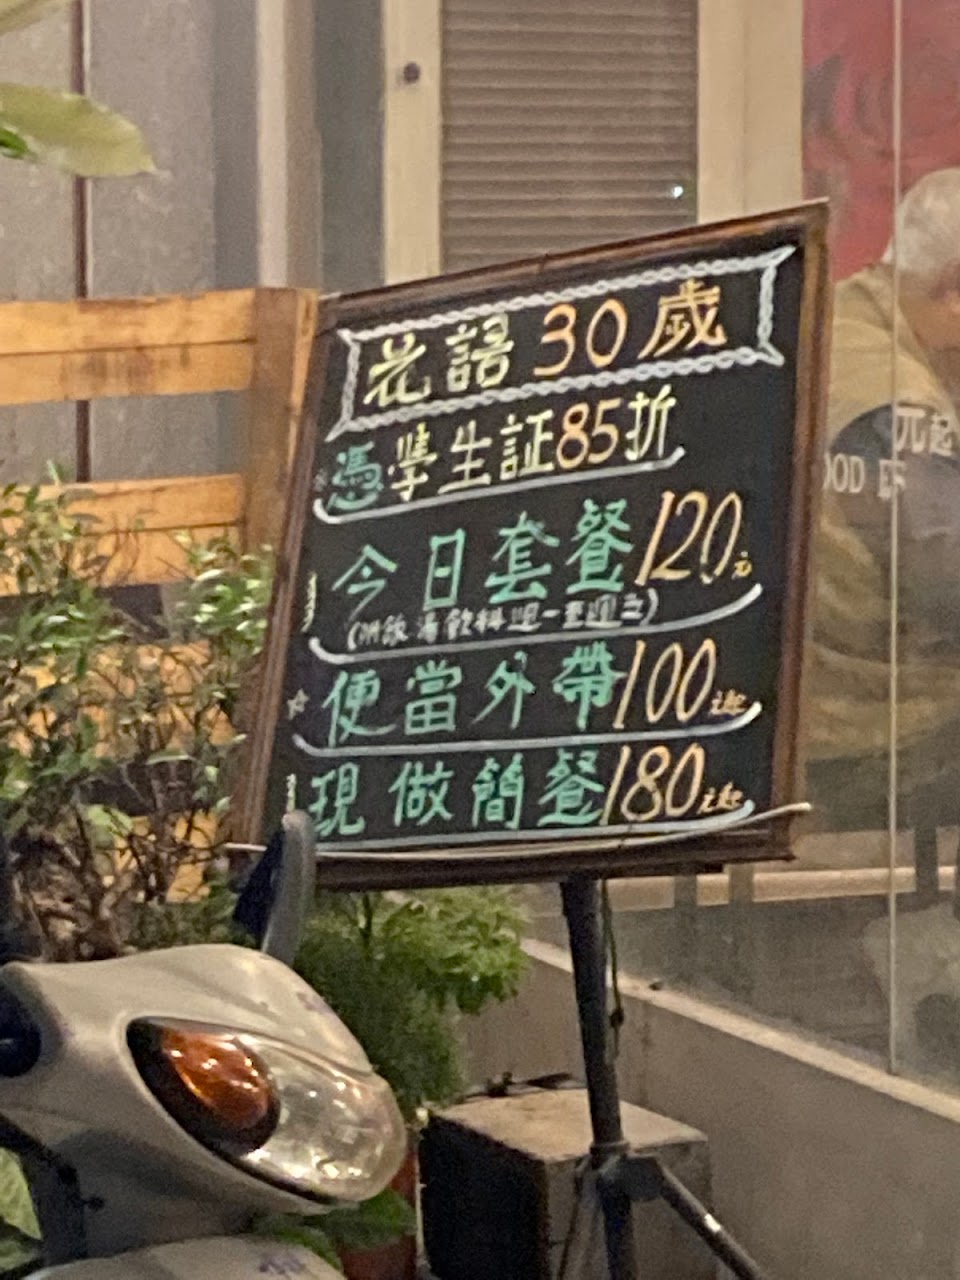 花語30歲
憑學生証85折
今日套餐120元
(附飯湯飲料週一至週五)
☆便當外帶100元起
現做簡餐180元起
元起
OOD